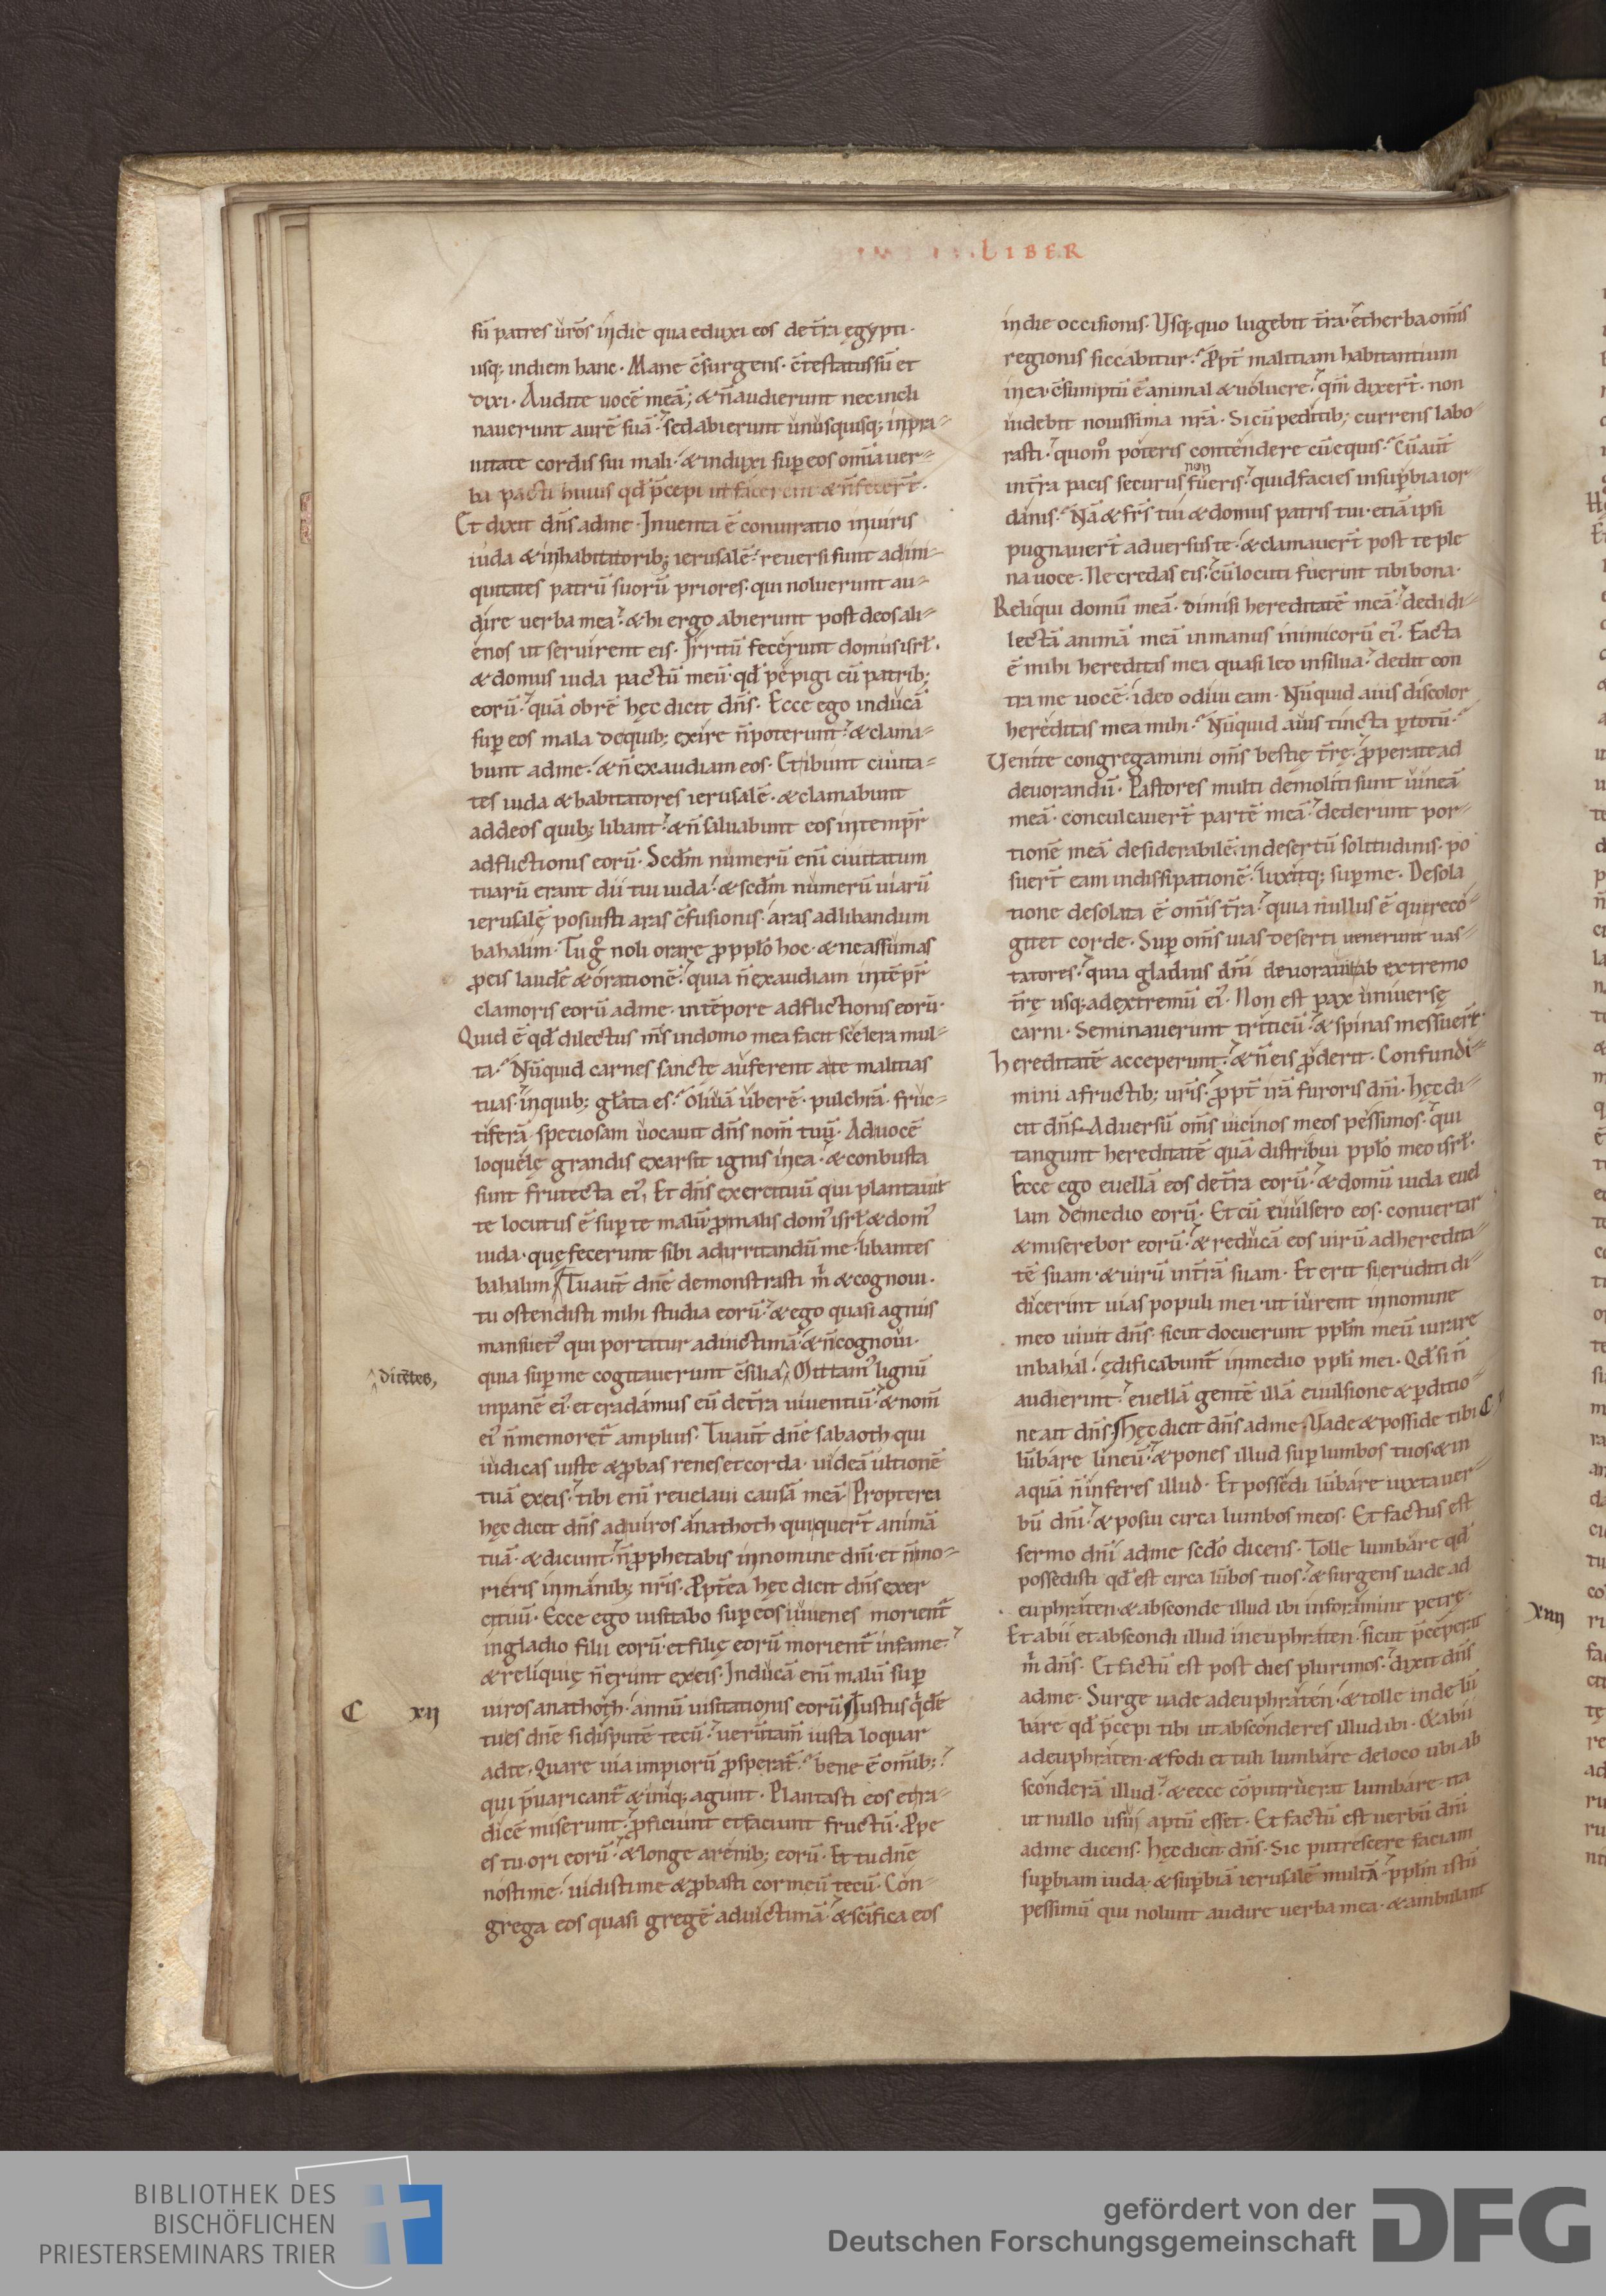 LIBER
sū patres ur̄os in die qua eduxi eos de tr̄a ęgypti·
usq; in diem hanc· Mane c̄surgens· c̄testatus sū et
dixi· Audite uocē meā; & n̄ audierunt nec incli
nauerunt aurē suā· sed abierunt unusquisq; in pra-
uitate cordis sui mali· & induxi sup eos omīa uer-
ba pacti huius qd p̄cepi ut facerent & n̄ fecerт̄·
Et dixit dn̄s ad me· Inuenta ē coniuratio in uiris
iuda & in habitatorib; ierusalē· reuersi sunt ad ini-
quitates patrū suorū priores· qui noluerunt au-
dire uerba mea· & hi ergo abierunt post deos ali-
enos ut seruirent eis· Irritū fecerunt domus isrl·
& domus iuda pactū meū· qd pepigi cū patrib;
eorū· quā obrē hęc dicit dn̄s· Ecce ego inducā
sup eos mala de quib; exire n̄ poterunt· & clama-
bunt ad me· & n̄ exaudiam eos· Et ibunt ciuita-
tes iuda & habitatores ierusalē· & clamabunt
ad deos quib; libant· & n̄ saluabunt eos in tempr̄
adflictionis eorū· Scdm numerū enī ciuitatum
tuarū erant dii tui iuda· & scdm numerū uiarū
ierusalē posuisti aras c̄fusionis· aras ad libandum
bahalim· Tu g noli orare p pplo hoc· & ne assumas
p eis laudē & orationē· quia n̄ exaudiam in tēpr̄
clamoris eorū ad me· in tēpore adflictionis eorū·
Quid ē qd dilectus ms̄ in domo mea facit scelera mul-
ta· Nūquid carnes sancte auferent a te malitias
tuas· in quib; glāta es· Oliuā uberē· pulchrā· fruc-
tiferā· speciosam uocauit dn̄s nom̄ tuū· Ad uocē
loquelę grandis exarsit ignis in ea· & conbusta
sunt frutecta ei'· Et dn̄s exercituū qui plantauit
te locutus ē sup te malū· p malis dom' isrl & dom'
iuda· quę fecerunt sibi ad irritandū me· libantes
bahalim· Tu aut̄ dn̄e demonstrasti m & cognoui·
tu ostendisti mihi studia eorū· & ego quasi agnus
mansuet' qui portatur ad uictimā· & n̄ cognoui·
dicētes,
quia sup me cogitauerunt c̄silia· Mittam' lignū
in panē ei'· et eradamus eū de tr̄a uiuentiū· & nom̄
ei' n̄ memoret̄ amplius· Tu aut̄ dn̄e sabaoth qui
iudicas iuste & pbas renes et corda· uideā ultionē
tuā ex eis· tibi enī reuelaui causā meā· Propterea
hęc dicit dn̄s ad uiros anathoth· qui quert̄ animā
tuā· & dicunt· n̄ pphetabis in nomine dn̄i· et n̄ mo-
rieris in manib; nr̄is· Ppt̄ea hęc dicit dn̄s exer
cituū· Ecce ego uisitabo sup eos iuuenes morient̄
in gladio filii eorū· et filię eorū morient̄ in fame·
& reliquię n̄ erunt ex eis· Inducā enī malū sup
uiros anathoth· annū uisitationis eorū· Iustus qdē
C xii
tu es dn̄e si disputē tecū· uerūtam̄ iusta loquar
ad te· Quare uia impiorū psperat̄· bene ē omīb;
qui p̄uaricant̄ & iniq; agunt· Plantasti eos et ra-
dicē miserunt· pficiunt et faciunt fructū· Ppe
es tu· ori eorū· & longe a renib; eorū· Et tu dn̄e
nosti me· uidisti me & pbasti cor meū tecū· Con-
grega eos quasi gregē ad uictimā· & scīfica eos
in die occisionis· Usq; quo lugebit tr̄a· et herba om̄is
regionis siccabitur· Ppt̄ malitiam habitantium
in ea· c̄sumptū ē animal & uolucre· qm̄ dixert̄· non
uidebit nouissima nr̄a· Si cū peditib; currens labo-
rasti· quom poteris contendere cū equis· Cū aut̄
in tr̄a pacis securus non fueris· quid facies in supbia ior
danis· Nā & fr̄s tui & domus patris tui· etiā ipsi
pugnauert̄ aduersus te· & clamauert̄ post te ple
na uoce· Ne credas eis· cū locuti fuerint tibi bona·
Reliqui domū meā· dimisi hereditatē meā· dedi di-
lectā animā meā in manus inimicorū ei'· Facta
ē mihi hereditas mei quasi leo in silua· dedit con
tra me uocē· ideo odiui eam· Nūquid auis discolor
hereditas mea mihi· Nūquid auis tincta p totū·
Venite congregamini om̄s bestię tr̄ę· pperate ad
deuorandū· Pastores multi demoliti sunt uineā
meā· conculcauert̄ partē meā· dederunt por-
tionē meā desiderabilē· in desertū solitudinis· po
suert̄ eam in dissipationē· luxitq; sup me· Desola
tione desolata ē om̄is tr̄a· quia nullus ē qui reco-
gitet corde· Sup om̄s uias deserti uenerunt uas-
tatores· quia gladius dn̄i deuorauit ab extremo
tr̄ę usq; ad extremū ei'· Non est pax uniuersę
carni· Seminauerunt triticū· & spinas messuert̄·
hereditatē acceperunt· & n̄ eis pderit· Confundi-
mini a fructib; ur̄is· ppt̄ irā furoris dn̄i· hęc di-
cit dn̄s· Aduersū om̄s uicinos meos pessimos· qui
tangunt hereditatē quā distribui pplo meo isrl·
Ecce ego euellā eos de tr̄a eorū· & domū iuda euel
lam de medio eorū· Et cū euulsero eos· conuertar
& miserebor eorū· & reducā eos uirū ad heredita-
tē suam· & uirū in tr̄ā suam· Et erit si eruditi di-
dicerint uias populi mei· ut iurent in nomine
meo uiuit dn̄s· sicut docuerunt pplm meū iurare
in bahal· ędificabunt̄ in medio ppli mei· Qd si n̄
audierint· euellā gentē illā euulsione & pditio-
ne ait dn̄s· Hęc dicit dn̄s ad me· Vade & posside tibi C
lūbare lineū· & pones illud sup lumbos tuos· & in
aquā n̄ inferes illud· Et possedi lūbare iuxta uer-
bū dn̄i· & posui circa lumbos meos· Et factus est
sermo dn̄i ad me scdo dicens· Tolle lumbare qd
possedisti qd est circa lūbos tuos· & surgens uade ad
euphraten· & absconde illud ibi in foramine petrę·
xiii
Et abii et abscondi illud in euphraten· sicut p̄ceperat
m dn̄s· Et factū est post dies plurimos· dixit dn̄s
ad me· Surge uade ad euphraten· & tolle inde lū
bare qd p̄cepi tibi ut absconderes illud ibi· & abii
ad euphraten· & fodi et tuli lumbare de loco ubi ab
sconderā illud· & ecce cōputruerat lumbare· ita
ut nullo usui aptū esset· Et factū est uerbū dn̄i
ad me dicens· hęc dicit dn̄s· Sic putrescere faciam
supbiam iuda· & supbiā ierusalē multā· pplm istū
pessimū qui nolunt audire uerba mea· & ambulant
BIBLIOTHEK DES
BISCHÖFLICHEN
PRIESTERSEMINARS TRIER
gefördert von der
Deutschen Forschungsgemeinschaft
DFG